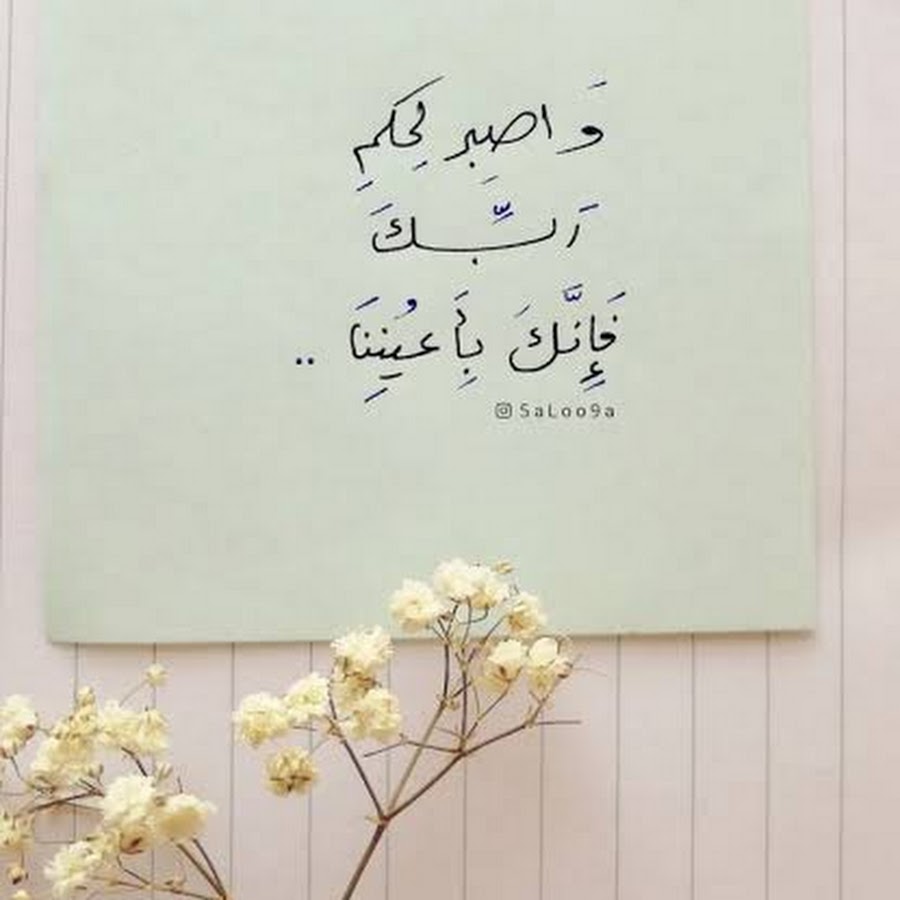 وَاصبِر لِحُكمِ
رَبِّكَ
فَإِنَّكَ بِأَعيُنِنَا ..
SaLoo9a